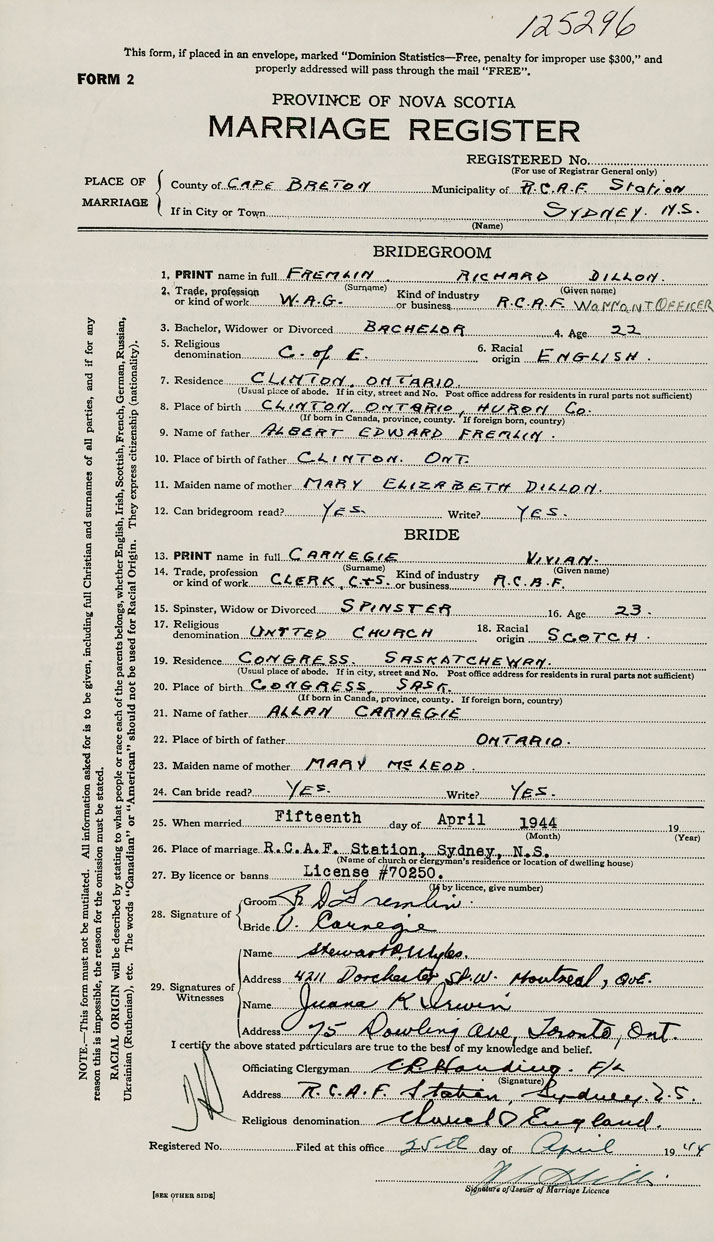 125296
This form, if placed in an envelope, marked "Dominion Statistics—Free, penalty for improper use $300," and
properly addressed will pass through the mail "FREE".
FORM 2
PROVINCE OF NOVA SCOTIA
MARRIAGE REGISTER
REGISTERED No.
(For use of Registrar General only)
PLACE OF MARRIAGE
County of CAPE BRETON Municipality of R.C.A.F. Station
If in City or Town SYDNEY. N.S.
(Name)
BRIDEGROOM
1. PRINT name in full FREMLIN. RICHARD DILLON.
(Surname) (Given name)
2. Trade, profession or kind of work W.A.G. Kind of industry or business R.C.A.F. WARRANT OFFICER
3. Bachelor, Widower or Divorced BACHELOR 4. Age 22
5. Religious denomination C. of E. 6. Racial origin ENGLISH.
7. Residence CLINTON, ONTARIO.
(Usual place of abode. If in city, street and No. Post office address for residents in rural parts not sufficient)
8. Place of birth CLINTON, ONTARIO, HURON CO.
(If born in Canada, province, county. If foreign born, country)
9. Name of father ALBERT EDWARD FREMLIN.
10. Place of birth of father CLINTON. ONT.
11. Maiden name of mother MARY ELIZABETH DILLON.
12. Can bridegroom read? YES. Write? YES.
BRIDE
13. PRINT name in full CARNEGIE VIVIAN.
(Surname) (Given name)
14. Trade, profession or kind of work CLERK, C&S. Kind of industry or business R.C.A.F.
15. Spinster, Widow or Divorced SPINSTER 16. Age 23.
17. Religious denomination UNITED CHURCH 18. Racial origin SCOTCH.
19. Residence CONGRESS. SASKATCHEWAN.
(Usual place of abode. If in city, street and No. Post office address for residents in rural parts not sufficient)
20. Place of birth CONGRESS, SASK.
(If born in Canada, province, county. If foreign born, country)
21. Name of father ALLAN CARNEGIE
22. Place of birth of father ONTARIO.
23. Maiden name of mother MARY McLEOD.
24. Can bride read? YES. Write? YES.
25. When married Fifteenth day of April 1944 19
(Month) (Year)
26. Place of marriage R.C.A.F. Station, Sydney, N.S.
(Name of church or clergyman's residence or location of dwelling house)
27. By licence or banns License #70250.
(If by licence, give number)
28. Signature of
Groom R D Fremlin.
Bride V. Carnegie
29. Signatures of Witnesses
Name Stewart
Address 4211 Dorchester St. W. Montreal, QUE.
Name Juana K Irwin
Address 75 Dowling Ave, Toronto, Ont.
I certify the above stated particulars are true to the best of my knowledge and belief.
Officiating Clergyman F/L
(Signature)
Address R.C.A.F. Station, Sydney, N.S.
Religious denomination Church of England.
Registered No. Filed at this office 25th day of April 1944
Signature of Issuer of Marriage Licence
[SEE OTHER SIDE]
NOTE.—This form must not be mutilated. All information asked for is to be given, including full Christian and surnames of all parties, and if for any
reason this is impossible, the reason for the omission must be stated.
RACIAL ORIGIN will be described by stating to what people or race each of the parents belongs, whether English, Irish, Scottish, French, German, Russian,
Ukrainian (Ruthenian), etc. The words "Canadian" or "American" should not be used for Racial Origin. They express citizenship (nationality).